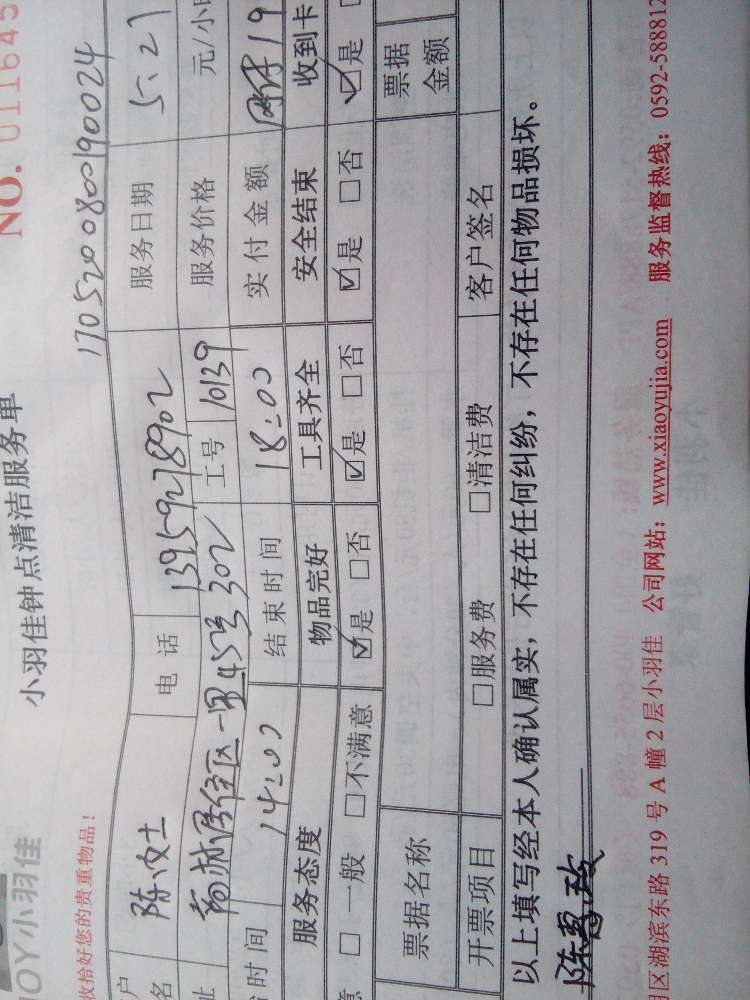 NO. 011645
小羽佳钟点清洁服务单
17052008001900024
JOY小羽佳
收拾好您的贵重物品！
户名 陈女士 电话 13959278902 服务日期 5.27
址 居住区一里45号302 工号 10139 服务价格 元/小时
时间 14:00 结束时间 18:00 实付金额
服务态度 物品完好 工具齐全 安全结束 收到卡
意 □一般 □不满意 ☑是 □否 ☑是 □否 ☑是 □否 ☑是
票据名称 票据金额
开票项目 □服务费 □清洁费 客户签名
以上填写经本人确认属实，不存在任何纠纷，不存在任何物品损坏。
陈惠玲
区湖滨东路 319 号 A 幢 2 层小羽佳 公司网站：www.xiaoyujia.com 服务监督热线：0592-588812